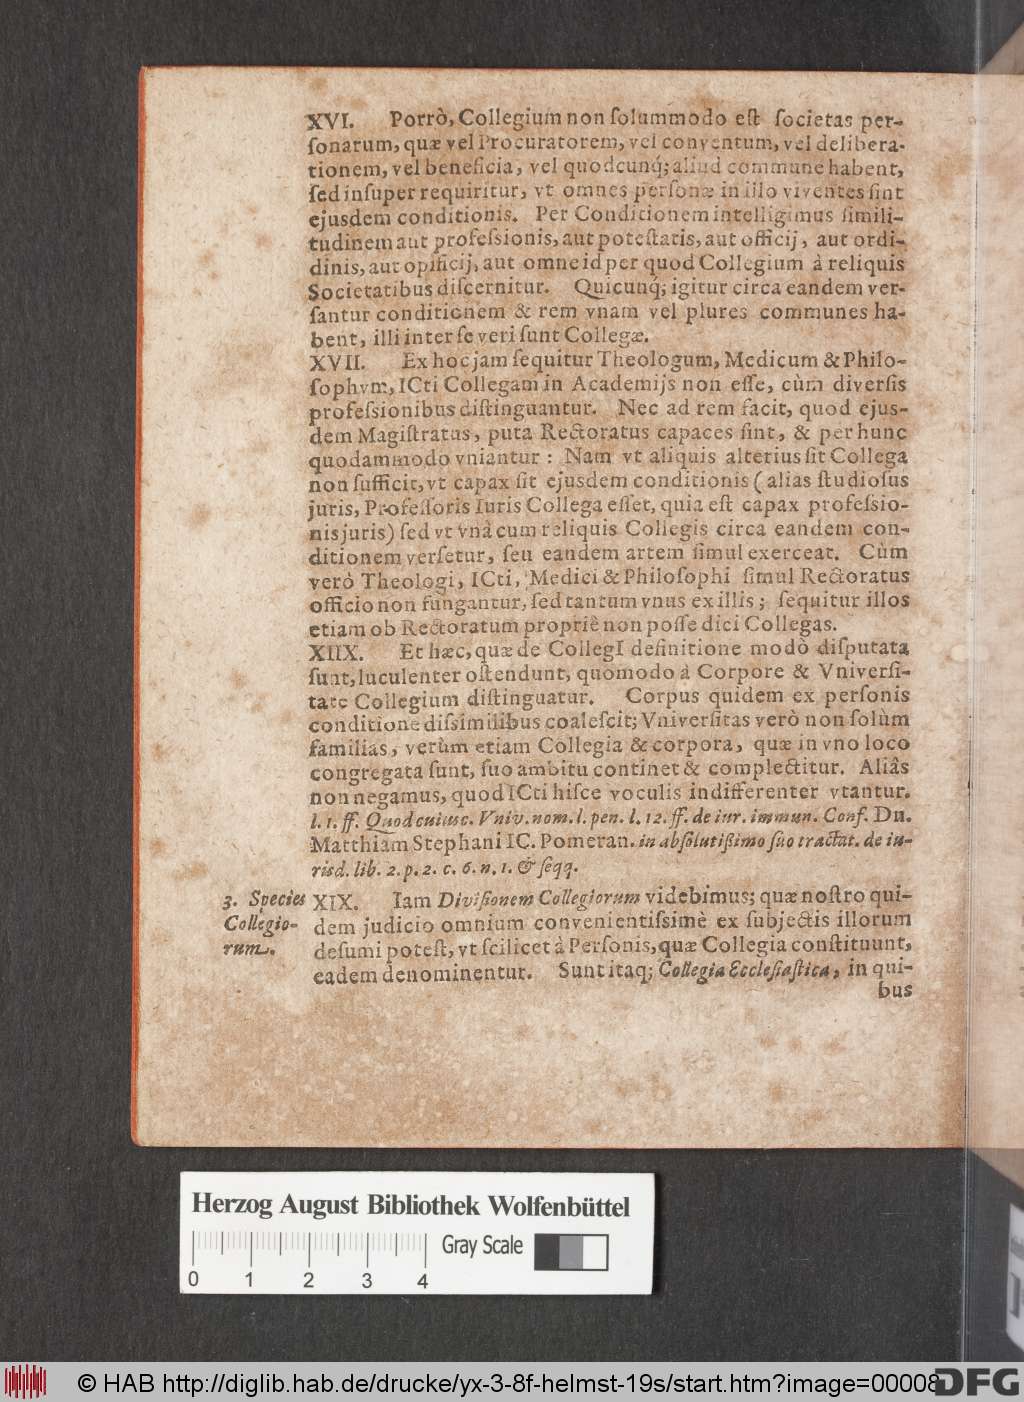 XVI. Porrò, Collegium non ſolummodo eſt ſocietas per-
ſonarum, quæ vel Procuratorem, vel conventum, vel delibera-
tionem, vel beneficia, vel quodcunq́; aliud commune habent,
ſed inſuper requiritur, vt omnes perſonæ in illo viventes ſint
ejusdem conditionis. Per Conditionem intelligimus ſimili-
tudinem aut profeſsionis, aut poteſtatis, aut officij, aut ordi-
dinis, aut opificij, aut omne id per quod Collegium à reliquis
Societatibus diſcernitur. Quicunq́; igitur circa eandem ver-
ſantur conditionem & rem vnam vel plures communes ha-
bent, illi inter ſe veri ſunt Collegæ.
XVII. Ex hoc jam ſequitur Theologum, Medicum & Philo-
ſophvm, ICti Collegam in Academijs non eſſe, cùm diverſis
profeſsionibus diſtinguantur. Nec ad rem facit, quod ejus-
dem Magiſtratus, puta Rectoratus capaces ſint, & per hunc
quodammodo vniantur : Nam vt aliquis alterius ſit Collega
non ſufficit, vt capax ſit ejusdem conditionis ( alias ſtudioſus
juris, Profeſſoris Iuris Collega eſſet, quia eſt capax profeſsio-
nis juris) ſed vt vnà cum reliquis Collegis circa eandem con-
ditionem verſetur, ſeu eandem artem ſimul exerceat. Cùm
verò Theologi, ICti, Medici & Philoſophi ſimul Rectoratus
officio non fungantur, ſed tantum vnus ex illis ; ſequitur illos
etiam ob Rectoratum propriè non poſſe dici Collegas.
XIIX. Et hæc, quæ de CollegI definitione modò diſputata
ſunt, luculenter oſtendunt, quomodo à Corpore & Vniverſi-
tate Collegium diſtinguatur. Corpus quidem ex perſonis
conditione diſsimilibus coaleſcit; Vniverſitas verò non ſolùm
familias, verùm etiam Collegia & corpora, quæ in vno loco
congregata ſunt, ſuo ambitu continet & complectitur. Aliâs
non negamus, quod ICti hiſce voculis indifferenter vtantur.
l. 1. ff. Quod cuiusc. Vniv. nom. l. pen. l. 12. ff. de iur. immun. Conf. Dn.
Matthiam Stephani IC. Pomeran. in abſolutißimo ſuo tractat. de iu-
risd. lib. 2. p. 2. c. 6. n. 1. & ſeqq.
3. Species
Collegio-
rum.
XIX. Iam Diviſionem Collegiorum videbimus; quæ noſtro qui-
dem judicio omnium convenientiſsimè ex ſubjectis illorum
deſumi poteſt, vt ſcilicet à Perſonis, quæ Collegia conſtituunt,
eadem denominentur. Sunt itaq; Collegia Eccleſiaſtica, in qui-
bus
Herzog August Bibliothek Wolfenbüttel
Gray Scale
0 1 2 3 4
© HAB http://diglib.hab.de/drucke/yx-3-8f-helmst-19s/start.htm?image=00008
DFG